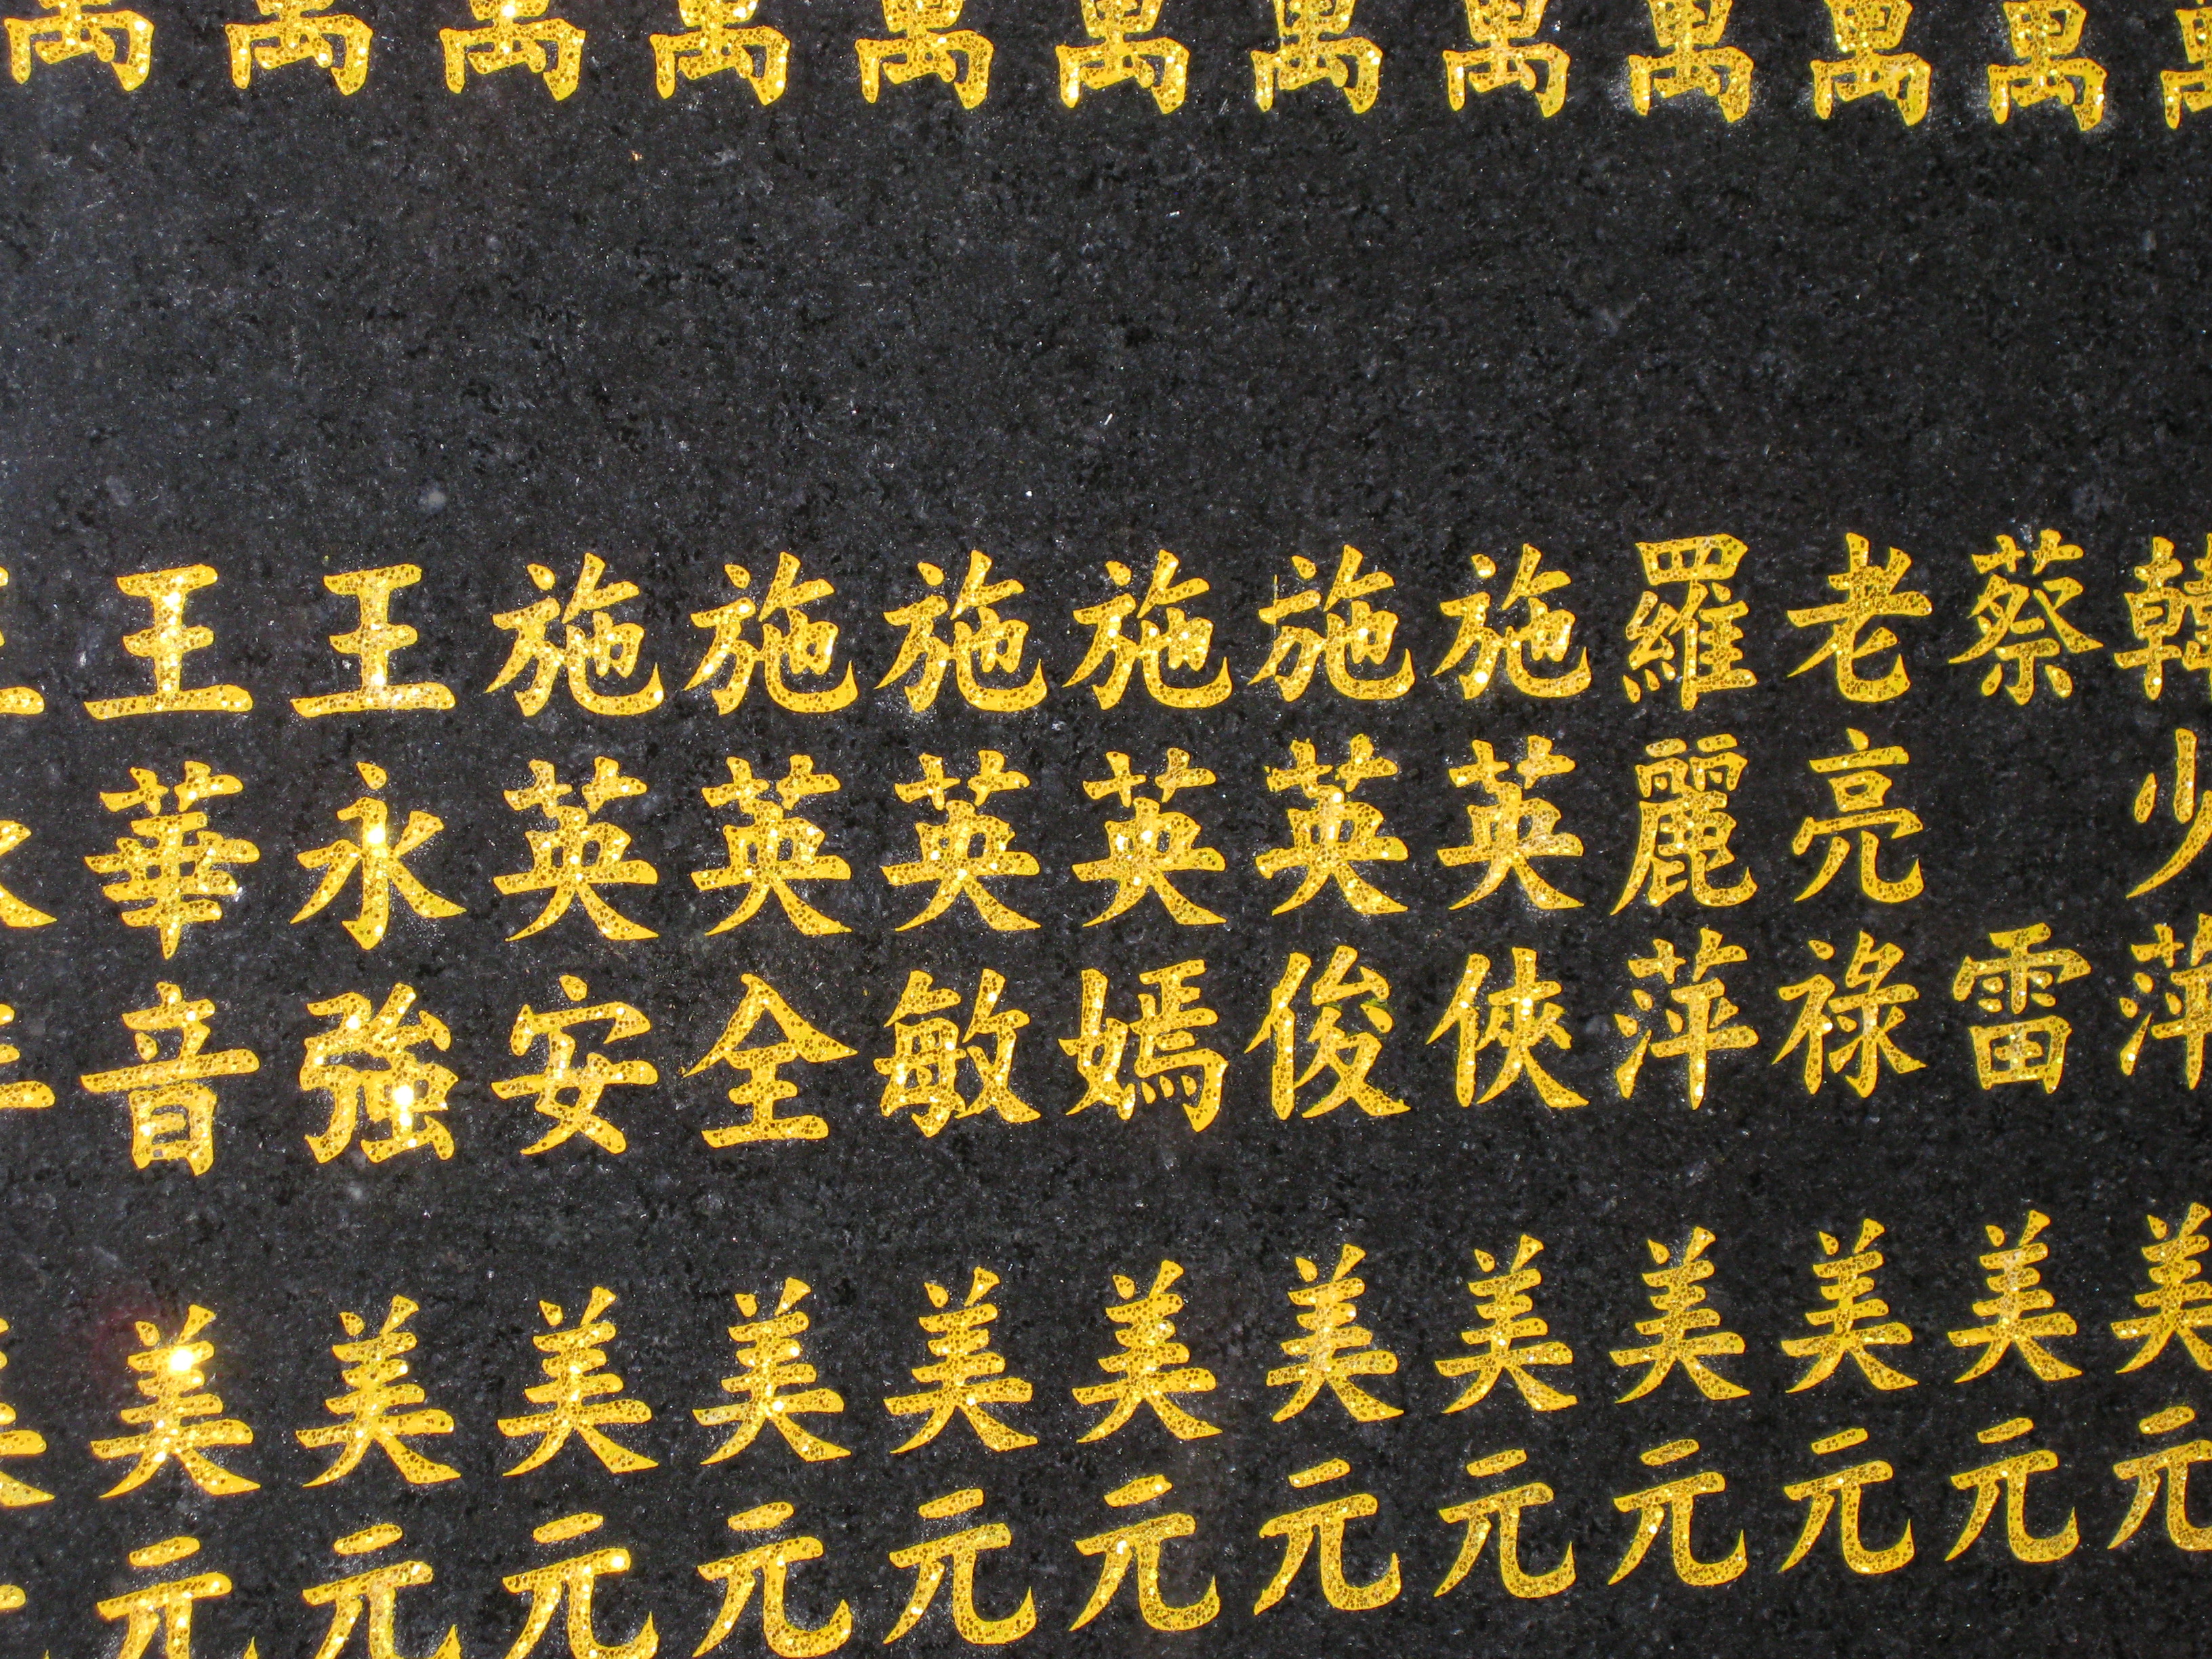 萬
萬
萬
萬
萬
萬
萬
萬
萬
萬
萬
韓少萍 美元
蔡 雷 美元
老亮祿 美元
羅麗萍 美元
施英俠 美元
施英俊 美元
施英嫣 美元
施英敏 美元
施英全 美元
施英安 美元
王永強 美元
王華音 美元